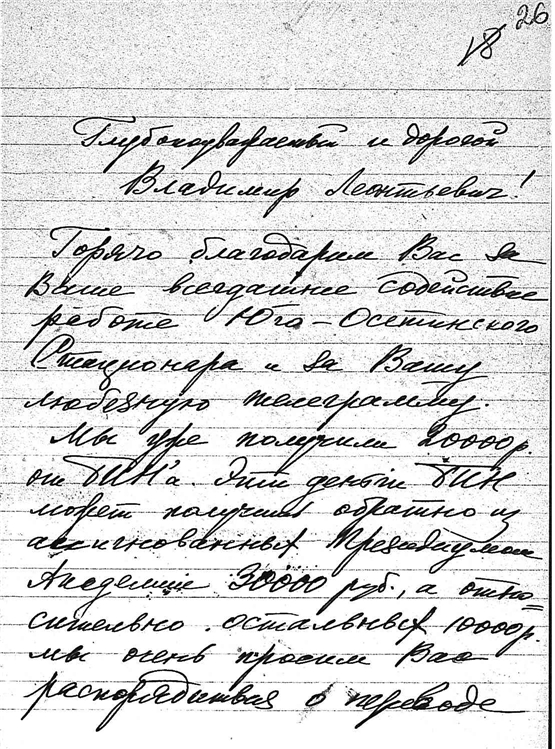 26
18
Глубокоуважаемый и дорогой
Владимир Леонтьевич!
Горячо благодарим Вас за
Ваше всегдашнее содействие
работе Юго-Осетинского
Стационара и за Вашу
любезную телеграмму.
Мы уже получили 20000р.
от БИН'а. Эти деньги БИН
может получить обратно из
ассигнованных Президиумом
Академии 30000 руб., а отно=
сительно остальных 10000р.
мы очень просим Вас
распорядиться о переводе